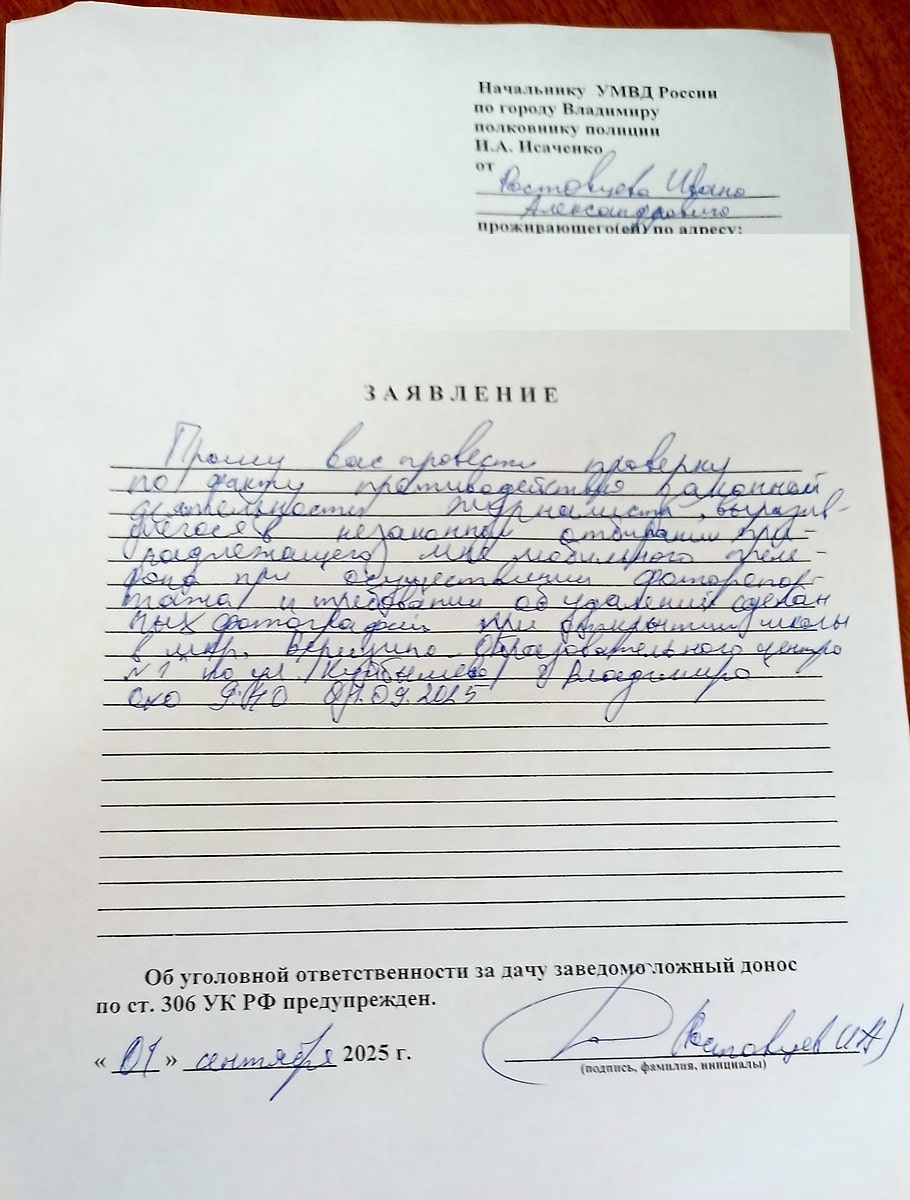 Начальнику УМВД России
по городу Владимиру
полковнику полиции
И.А. Исаченко
от
Ростовцева Ивана
Александровича
проживающего(ей) по адресу:
ЗАЯВЛЕНИЕ
Прошу вас провести проверку
по факту противодействия законной
деятельности журналиста, выразив-
шегося в незаконном отбирании при-
надлежащего мне мобильного теле-
фона при осуществлении фоторепор-
тажа и требовании об удалении сделан
ных фотографий при открытии школы
в мкр. Веризино Образовательного центра
№1 по ул. Куйбышева г Владимира
око 9:40 01.09.2025
Об уголовной ответственности за дачу заведомо ложный донос
по ст. 306 УК РФ предупрежден.
« 01 » сентября 2025 г.
Ростовцев И.А)
(подпись, фамилия, инициалы)